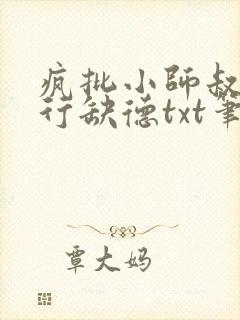 疯批小师叔
行缺德txt笔
覃大妈